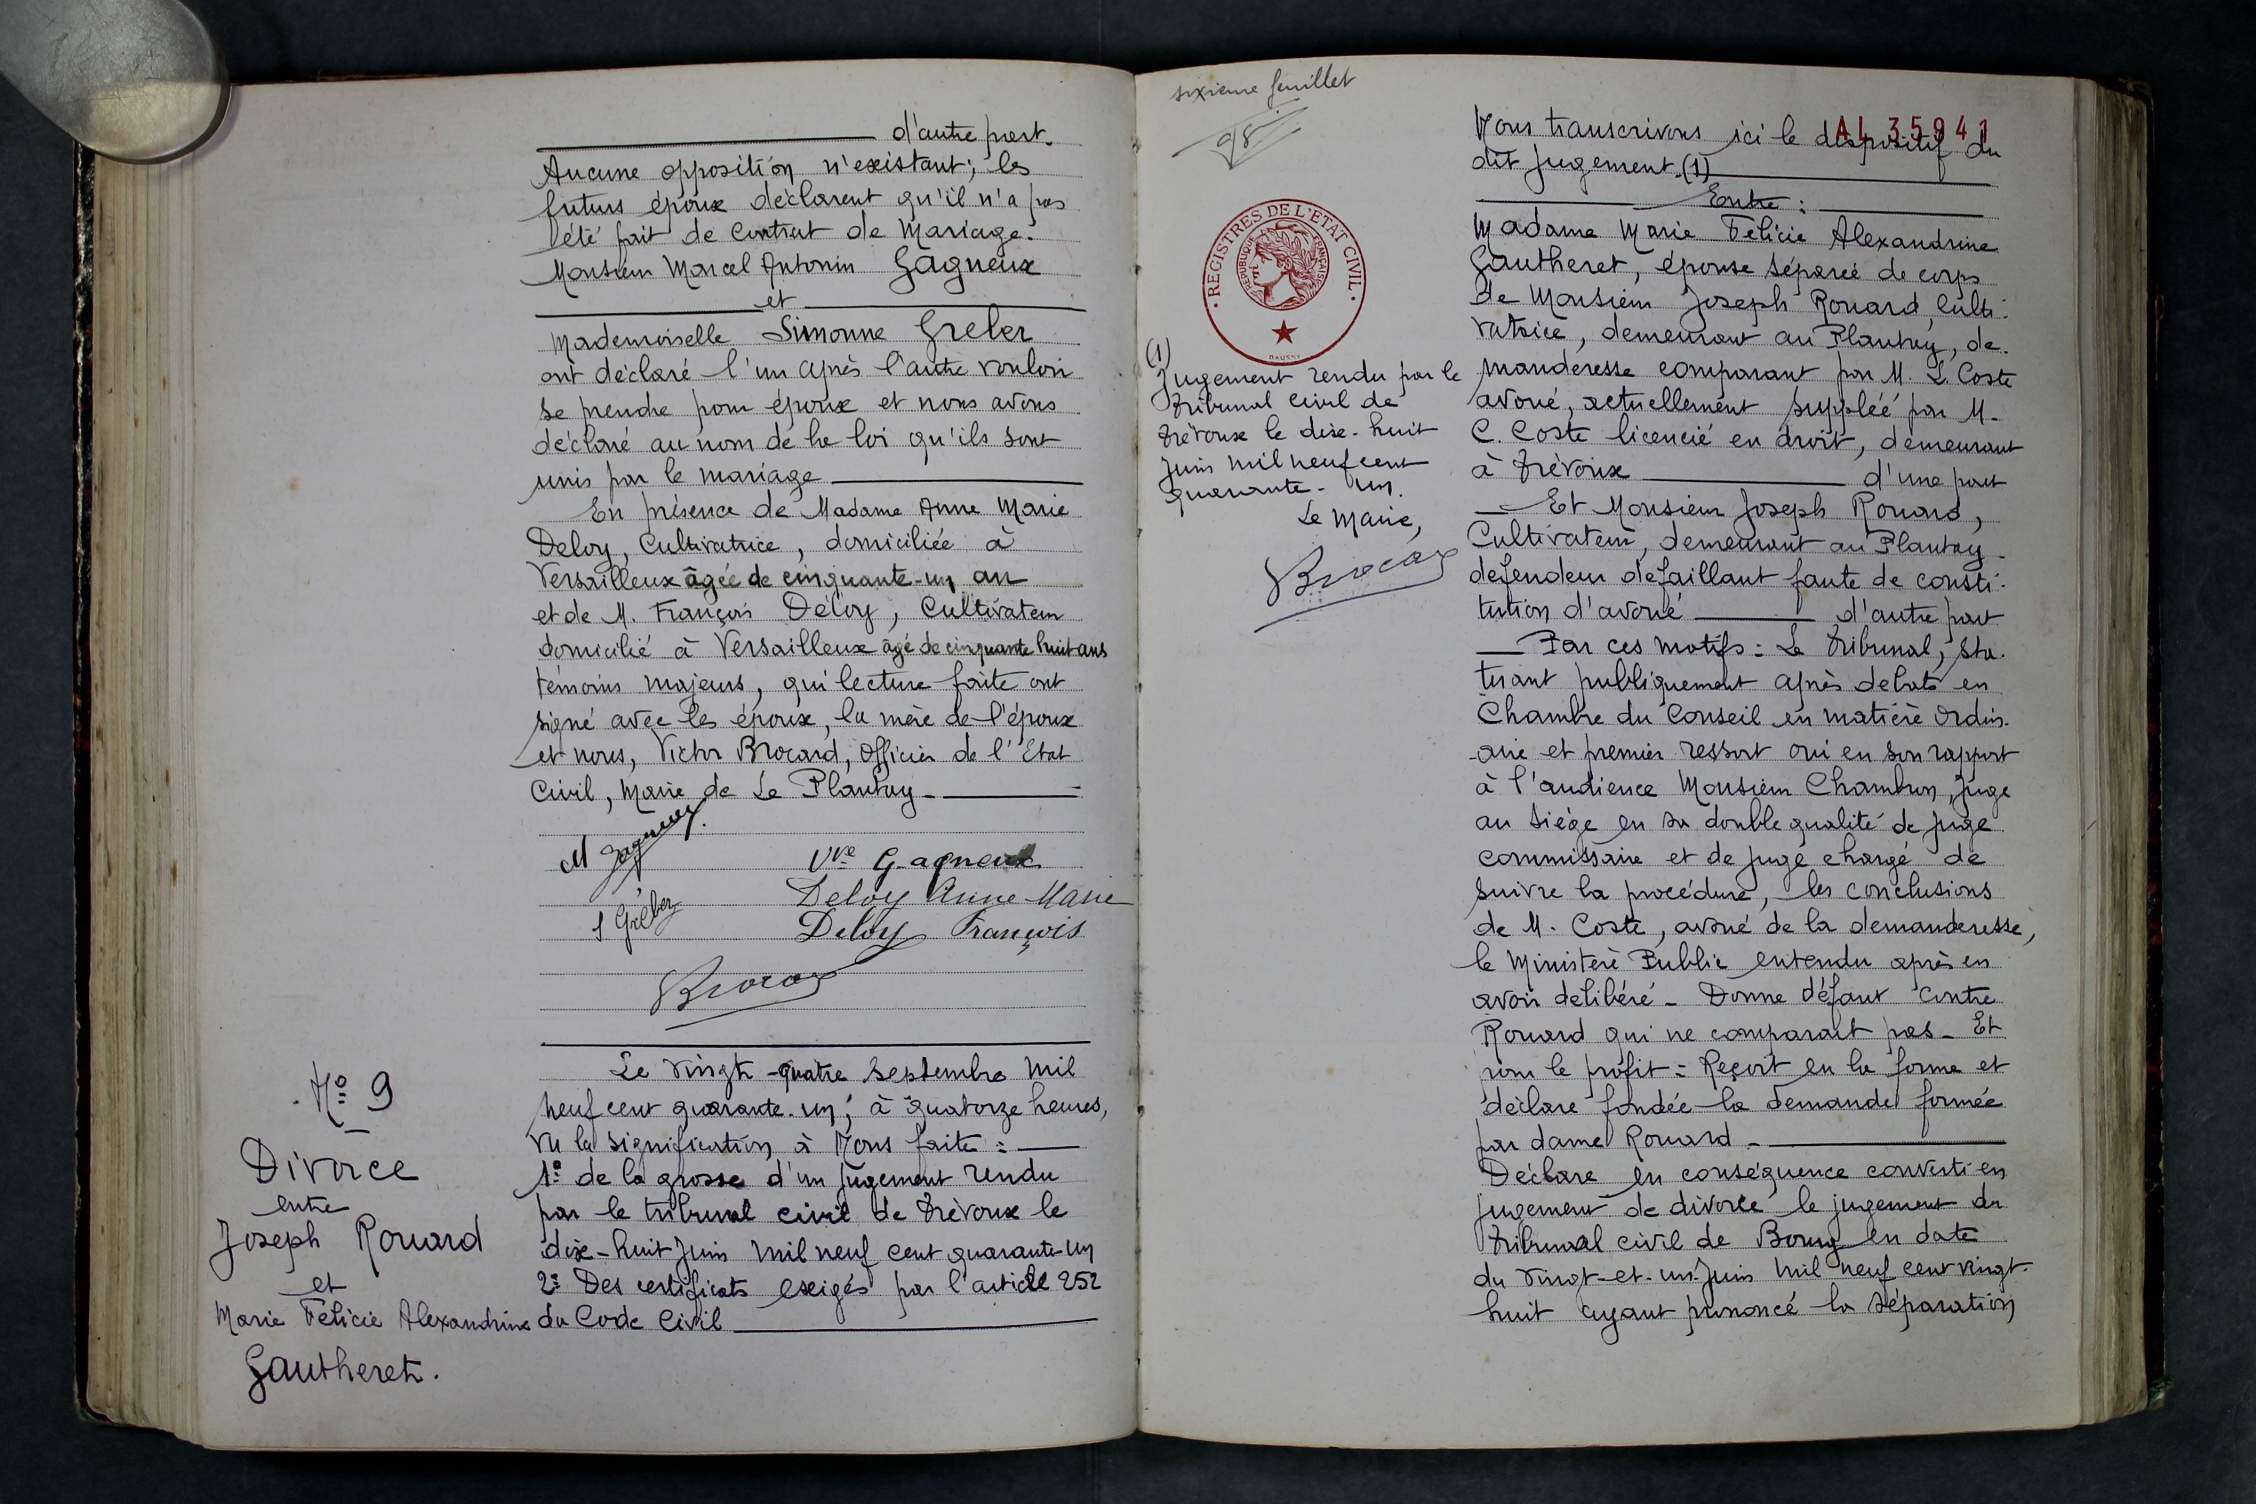 d'autre part.
Aucune opposition n'existant; les
futurs époux déclarent qu'il n'a pas
été fait de contrat de Mariage.
Monsieur Marcel Antonin Gagneux
et
Mademoiselle Simonne Greber
ont déclaré l'un après l'autre vouloir
se prendre pour époux et nous avons
déclaré au nom de la loi qu'ils sont
unis par le mariage
En présence de Madame Anne Marie
Deloy, Cultivatrice, domiciliée à
Versailleux âgée de cinquante-un an
et de M. François Deloy, Cultivateur
domicilié à Versailleux âgé de cinquante huit ans
témoins majeurs, qui lecture faite ont
signé avec les époux, la mère de l'époux
et nous, Victor Brocard, officier de l'Etat
Civil, Maire de Le Plantay
M Gagneux
Vve Gagneux
S Gréber
Deloy Anne-Marie
Deloy François
Brocard
N° 9
Divorce
entre
Joseph Rouard
et
Marie Felicie Alexandrine
Gautheret.
Le vingt-quatre Septembre mil
neuf cent quarante-un; à quatorze heures,
vu la signification à Nous faite:
1° de la grosse d'un jugement rendu
par le tribunal civil de Trévoux le
dix-huit Juin mil neuf cent quarante-un
2° Des certificats exigés par l'article 252
du Code Civil
sixième feuillet
98
REGISTRES DE L'ETAT CIVIL
REPUBLIQUE FRANÇAISE
DAUSSY
(1)
Jugement rendu par le
tribunal civil de
Trévoux le dix-huit
Juin mil neuf cent
quarante-un.
Le Maire,
Brocard
AL 35941
Nous transcrivons ici le dispositif du
dit Jugement.(1)
Entre:
Madame Marie Felicie Alexandrine
Gautheret, épouse séparée de corps
de Monsieur Joseph Rouard, culti-
vatrice, demeurant au Plantay, de-
manderesse comparant par M. L. Coste
avoué, actuellement suppléé par M.
C. Coste licencié en droit, demeurant
à Trévoux d'une part
Et Monsieur Joseph Rouard,
Cultivateur, demeurant au Plantay
defendeur defaillant faute de consti-
tution d'avoué d'autre part
Par ces motifs: Le Tribunal, Sta-
tuant publiquement après debats en
Chambre du Conseil en matière ordin-
aire et premier ressort oui en son rapport
à l'audience Monsieur Chambon, Juge
au siège en sa double qualité de Juge
commissaire et de Juge chargé de
suivre la procédure, les conclusions
de M. Coste, avoué de la demanderesse,
le Ministère Public entendu après en
avoir delibéré - Donne défaut contre
Rouard qui ne comparait pas - Et
pour le profit = Reçoit en la forme et
déclare fondée la demande formée
par dame Rouard -
Déclare en conséquence converti en
jugement de divorce le jugement du
Tribunal civil de Bourg en date
du vingt-et-un Juin mil neuf cent vingt-
huit ayant prononcé la séparation